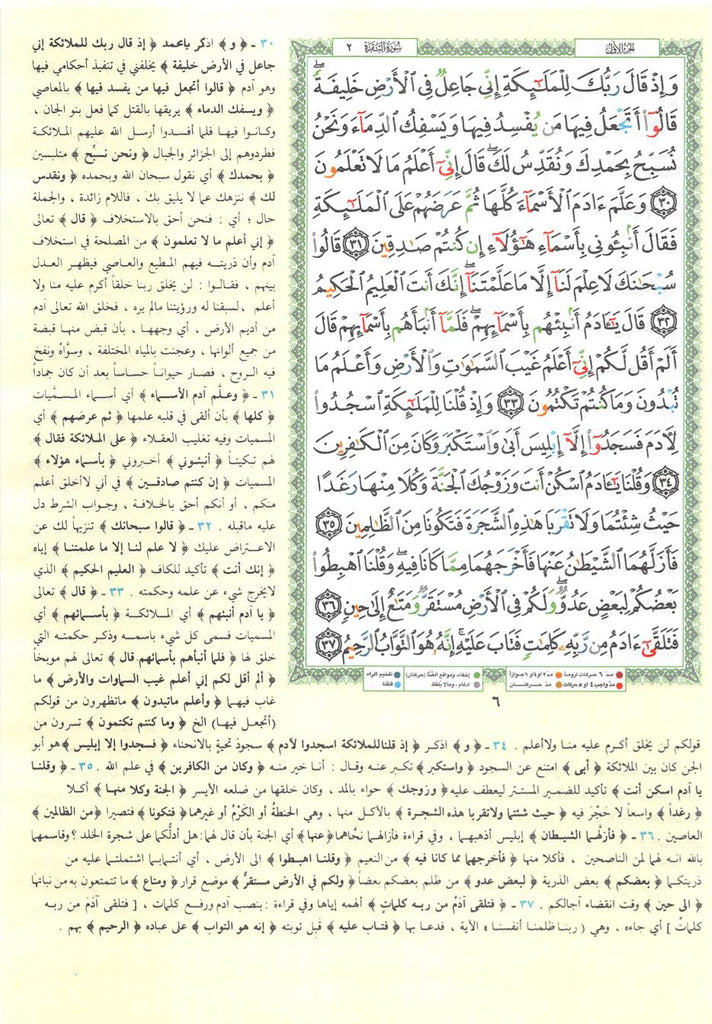 الجزء الأول
سورة البقرة ٢
وَإِذْ قَالَ رَبُّكَ لِلْمَلَٰٓئِكَةِ إِنِّي جَاعِلٌ فِي الْأَرْضِ خَلِيفَةً ۖ
قَالُوٓا۟ أَتَجْعَلُ فِيهَا مَن يُفْسِدُ فِيهَا وَيَسْفِكُ الدِّمَآءَ وَنَحْنُ
نُسَبِّحُ بِحَمْدِكَ وَنُقَدِّسُ لَكَ ۖ قَالَ إِنِّيٓ أَعْلَمُ مَا لَا تَعْلَمُونَ
﴿٣٠﴾ وَعَلَّمَ ءَادَمَ الْأَسْمَآءَ كُلَّهَا ثُمَّ عَرَضَهُمْ عَلَى الْمَلَٰٓئِكَةِ
فَقَالَ أَنۢبِـُٔونِي بِأَسْمَآءِ هَٰٓؤُلَآءِ إِن كُنتُمْ صَٰدِقِينَ ﴿٣١﴾ قَالُوا۟
سُبْحَٰنَكَ لَا عِلْمَ لَنَآ إِلَّا مَا عَلَّمْتَنَآ ۖ إِنَّكَ أَنتَ الْعَلِيمُ الْحَكِيمُ
﴿٣٢﴾ قَالَ يَٰٓـَٔادَمُ أَنۢبِئْهُم بِأَسْمَآئِهِمْ ۖ فَلَمَّآ أَنۢبَأَهُم بِأَسْمَآئِهِمْ قَالَ
أَلَمْ أَقُل لَّكُمْ إِنِّيٓ أَعْلَمُ غَيْبَ السَّمَٰوَٰتِ وَالْأَرْضِ وَأَعْلَمُ مَا
تُبْدُونَ وَمَا كُنتُمْ تَكْتُمُونَ ﴿٣٣﴾ وَإِذْ قُلْنَا لِلْمَلَٰٓئِكَةِ اسْجُدُوا۟
لِـَٔادَمَ فَسَجَدُوٓا۟ إِلَّآ إِبْلِيسَ أَبَىٰ وَاسْتَكْبَرَ وَكَانَ مِنَ الْكَٰفِرِينَ
﴿٣٤﴾ وَقُلْنَا يَٰٓـَٔادَمُ اسْكُنْ أَنتَ وَزَوْجُكَ الْجَنَّةَ وَكُلَا مِنْهَا رَغَدًا
حَيْثُ شِئْتُمَا وَلَا تَقْرَبَا هَٰذِهِ الشَّجَرَةَ فَتَكُونَا مِنَ الظَّٰلِمِينَ ﴿٣٥﴾
فَأَزَلَّهُمَا الشَّيْطَٰنُ عَنْهَا فَأَخْرَجَهُمَا مِمَّا كَانَا فِيهِ ۖ وَقُلْنَا اهْبِطُوا۟
بَعْضُكُمْ لِبَعْضٍ عَدُوٌّ ۖ وَلَكُمْ فِي الْأَرْضِ مُسْتَقَرٌّ وَمَتَٰعٌ إِلَىٰ حِينٍ ﴿٣٦﴾
فَتَلَقَّىٰٓ ءَادَمُ مِن رَّبِّهِ كَلِمَٰتٍ فَتَابَ عَلَيْهِ ۚ إِنَّهُ هُوَ التَّوَّابُ الرَّحِيمُ ﴿٣٧﴾
مدّ ٦ حركات لزوماً مدّ ٢ أو ٤ أو ٦ جوازاً إخفاء، ومواقع الغنّة (حركتان) تفخيم الراء
مدّ واجب ٤ أو ٥ حركات مدّ حركتان إدغام، وما لا يلفظ قلقلة
٦
٣٠ ـ ﴿ و ﴾ اذكر يا محمد ﴿ إذ قال ربك للملائكة إني
جاعل في الأرض خليفة ﴾ يخلفني في تنفيذ أحكامي فيها
وهو آدم ﴿ قالوا أتجعل فيها من يفسد فيها ﴾ بالمعاصي
﴿ ويسفك الدماء ﴾ يريقها بالقتل كما فعل بنو الجان ،
وكانوا فيها فلما أفسدوا أرسل الله عليهم الملائكة
فطردوهم إلى الجزائر والجبال ﴿ ونحن نسبّح ﴾ متلبسين
﴿ بحمدك ﴾ أي نقول سبحان الله وبحمده ﴿ ونقدس
لك ﴾ ننزهك عما لا يليق بك ، فاللام زائدة ، والجملة
حال ؛ أي : فنحن أحق بالاستخلاف ﴿ قال ﴾ تعالى
﴿ إني أعلم ما لا تعلمون ﴾ من المصلحة في استخلاف
آدم وأن ذريته فيهم المطيع والعاصي فيظهر العدل
بينهم ، فقالوا : لن يخلق ربنا خلقاً أكرم عليه منا ولا
أعلم ، لسبقنا له ورؤيتنا مالم يره ، فخلق الله تعالى آدم
من أديم الأرض ، أي وجهها ، بأن قبض منها قبضة
من جميع ألوانها ، وعجنت بالمياه المختلفة ، وسوّاه ونفخ
فيه الروح ، فصار حيواناً حساساً بعد أن كان جماداً
٣١ ـ ﴿ وعلّم آدم الأسماء ﴾ أي أسماء المسمّيات
﴿ كلها ﴾ بأن ألقى في قلبه علمها ﴿ ثم عرضهم ﴾ أي
المسميات وفيه تغليب العقلاء ﴿ على الملائكة فقال ﴾
لهم تبكيتاً ﴿ أنبئوني ﴾ أخبروني ﴿ بأسماء هؤلاء ﴾
المسميات ﴿ إن كنتم صادقين ﴾ في أني لا أخلق أعلم
منكم ، أو أنكم أحق بالخلافة ، وجواب الشرط دل
عليه ماقبله . ٣٢ ـ ﴿ قالوا سبحانك ﴾ تنزيهاً لك عن
الاعتراض عليك ﴿ لا علم لنا إلا ما علمتنا ﴾ إياه
﴿ إنك أنت ﴾ تأكيد للكاف ﴿ العليم الحكيم ﴾ الذي
لايخرج شيء عن علمه وحكمته . ٣٣ ـ ﴿ قال ﴾ تعالى
﴿ يا آدم أنبئهم ﴾ أي الملائكة ﴿ بأسمائهم ﴾ أي
المسميات فسمى كل شيء باسمه وذكر حكمته التي
خلق لها ﴿ فلما أنبأهم بأسمائهم قال ﴾ تعالى لهم موبخاً
﴿ ألم أقل لكم إني أعلم غيب السماوات والأرض ﴾ ما
غاب فيهما ﴿ وأعلم ماتبدون ﴾ ماتظهرون من قولكم
(أتجعل فيها) الخ ﴿ وما كنتم تكتمون ﴾ تسرون من
قولكم لن يخلق أكرم عليه منا ولا أعلم . ٣٤ ـ ﴿ و ﴾ اذكر ﴿ إذ قلنا للملائكة اسجدوا لآدم ﴾ سجود تحيةٍ بالانحناء ﴿ فسجدوا إلا إبليس ﴾ هو أبو
الجن كان بين الملائكة ﴿ أبى ﴾ امتنع عن السجود ﴿ واستكبر ﴾ تكبر عنه وقال : أنا خير منه ﴿ وكان من الكافرين ﴾ في علم الله . ٣٥ ـ ﴿ وقلنا
يا آدم اسكن أنت ﴾ تأكيد للضمير المستتر ليعطف عليه ﴿ وزوجك ﴾ حواء بالمد ، وكان خلقها من ضلعه الأيسر ﴿ الجنة وكلا منها ﴾ أكلا
﴿ رغداً ﴾ واسعاً لا حَجْرَ فيه ﴿ حيث شئتما ولاتقربا هذه الشجرة ﴾ بالأكل منها ، وهي الحنطةُ أو الكرْمُ أو غيرهما ﴿ فتكونا ﴾ فتصيرا ﴿ من الظالمين ﴾
العاصين . ٣٦ ـ ﴿ فأزلهُما الشيطان ﴾ إبليس أذهبهما ، وفي قراءة فأزالهما نحّاهما ﴿ عنها ﴾ أي الجنة بأن قال لهما : هل أدلُّكما على شجرة الخلد ؟ وقاسمهما
بالله انه لهما لمن الناصحين ، فأكلا منها ﴿ فأخرجهما مما كانا فيه ﴾ من النعيم ﴿ وقلنا اهبطوا ﴾ الى الأرض ، أي أنتما بما اشتملتما عليه من
ذريتكما ﴿ بعضكم ﴾ بعض الذرية ﴿ لبعض عدو ﴾ من ظلم بعضكم بعضاً ﴿ ولكم في الأرض مستقرٌّ ﴾ موضع قرار ﴿ ومتاع ﴾ ما تتمتعون به من نباتها
﴿ الى حين ﴾ وقت انقضاء آجالكم . ٣٧ ـ ﴿ فتلقى آدمُ من ربه كلماتٍ ﴾ ألهمه إياها وفي قراءة : بنصب آدم ورفع كلمات ، [ فتلقى آدمَ من ربه
كلماتٌ ] أي جاءه ، وهي ( ربنا ظلمنا أنفسنا » الآية ، فدعا بها ﴿ فتاب عليه ﴾ قَبِل توبته ﴿ إنه هو التواب ﴾ على عباده ﴿ الرحيم ﴾ بهم .